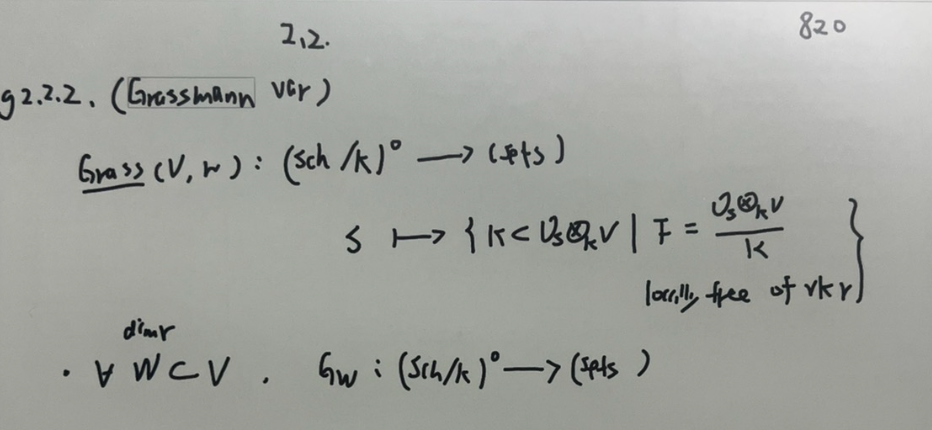 2.2.
820
g2.2.2. (Grassmann Var)
Grass (V, r) : (Sch /k)° ⟶ (sets)
S ⟼ { K ⊂ O_S⊗_k V | F = O_S⊗_k V / K
locally free of rk r }
dim r
· ∀ W ⊂ V . G_W : (Sch/k)° ⟶ (sets)